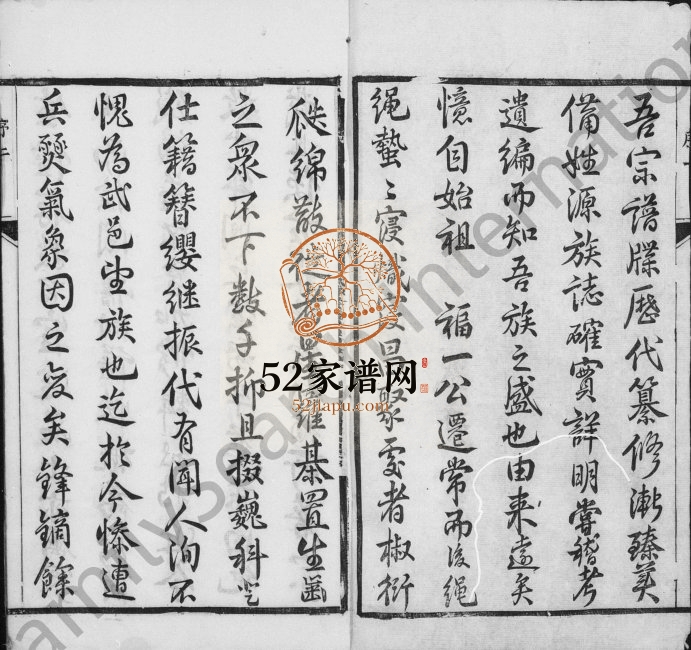 吾宗譜牒歷代纂修漸臻美
備姓源族誌確實詳明嘗稽考
遺编而知吾族之盛也由来遠矣
憶自始祖 福一公遷常而後繩
繩蟄〻寖 昌 聚處者椒衍
瓞綿散 者星羅棊置生齒
之眾不下數千抑且掇巍科登
仕籍簪纓继振代有聞人洵不
愧為武邑望族也迄於今慘遭
兵燹氣象因之变矣鋒鏑餘
序
52家谱网
52hapu.com
FamilySearch International